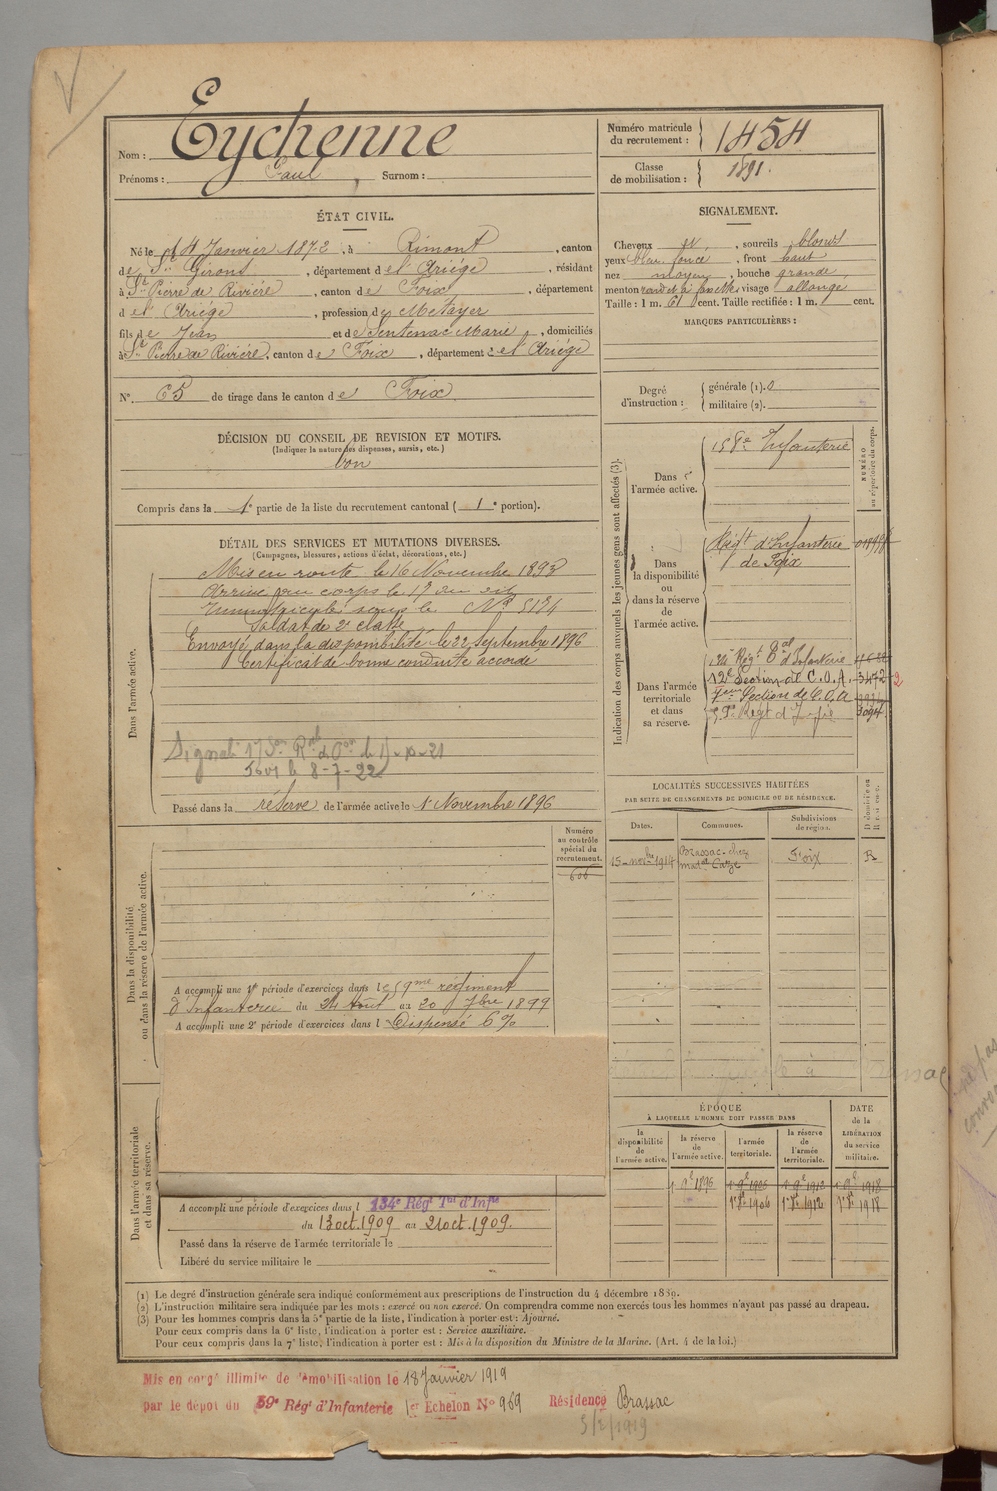 Nom : Eychenne
Prénoms : Paul , Surnom :
Numéro matricule du recrutement : 1454
Classe de mobilisation : 1891.
ÉTAT CIVIL.
Né le 4 Janvier 1872, à Rimont, canton
de St Girons, département de l'Ariège, résidant
à St Pierre de Rivière, canton de Foix, département
d e l'Ariège, profession de Métayer
fils de Jean et de Sentenac Marie, domiciliés
à St Pierre de Rivière, canton de Foix, département de l'Ariège
N°. 65 de tirage dans le canton de Foix
DÉCISION DU CONSEIL DE REVISION ET MOTIFS.
(Indiquer la nature des dispenses, sursis, etc.)
bon
Compris dans la 1e partie de la liste du recrutement cantonal ( 1e portion).
DÉTAIL DES SERVICES ET MUTATIONS DIVERSES.
(Campagnes, blessures, actions d'éclat, décorations, etc.)
Dans l'armée active.
Mis en route le 16 Novembre 1893
Arrivé au corps le 17 du dit
Immatriculé sous le N° 5124
Soldat de 2e classe
Envoyé dans la disponibilité le 22 Septembre 1896
Certificat de bonne conduite accordé
8-7-22
Passé dans la réserve de l'armée active le 1r Novembre 1896
Dans la disponibilité ou dans la réserve de l'armée active.
Numéro au contrôle spécial du recrutement.
606
A accompli une 1re période d'exercices dans le 59me régiment
d'Infanterie du 24 Août au 20 7bre 1899
A accompli une 2e période d'exercices dans l Dispensé 6%
Dans l'armée territoriale et dans sa réserve.
A accompli une période d'exercices dans l 134e Régt Tal d'Infie
du 13 oct. 1909 au 21 oct. 1909.
Passé dans la réserve de l'armée territoriale le
Libéré du service militaire le
SIGNALEMENT.
Cheveux et, sourcils blonds
yeux bleu foncé, front haut
nez moyen, bouche grande,
menton rond et à fossette, visage allongé
Taille : 1 m. 61 cent. Taille rectifiée : 1 m. cent.
MARQUES PARTICULIÈRES :
Degré d'instruction : générale (1). 0
militaire (2).
Indication des corps auxquels les jeunes gens sont affectés (3).
NUMÉRO au répertoire du corps.
Dans l'armée active.
158e Infanterie
Dans la disponibilité ou dans la réserve de l'armée active.
Régt d'Infanterie
de Foix
Dans l'armée territoriale et dans sa réserve.
134e Régt Tal d'Infanterie
12e Section de C.O.A. 3472
Section de C.O.A
59e Regt d'Infie 3094
LOCALITÉS SUCCESSIVES HABITÉES
PAR SUITE DE CHANGEMENTS DE DOMICILE OU DE RÉSIDENCE.
Dates. Communes. Subdivisions de région. D domicile ou R résidence.
15-novbre 1914 Brassac - chez Foix R
ÉPOQUE
À LAQUELLE L'HOMME DOIT PASSER DANS
la disponibilité de l'armée active. la réserve de l'armée active. l'armée territoriale. la réserve de l'armée territoriale.
DATE de la LIBÉRATION du service militaire.
1 9e 1896 1 9e 1906 1 9e 1912 1 9e 1918
1r 8e 1906 1r 8e 1912 1r 8e 1918
(1) Le degré d'instruction générale sera indiqué conformément aux prescriptions de l'instruction du 4 décembre 1889.
(2) L'instruction militaire sera indiquée par les mots : exercé ou non exercé. On comprendra comme non exercés tous les hommes n'ayant pas passé au drapeau.
(3) Pour les hommes compris dans la 5e partie de la liste, l'indication à porter est : Ajourné.
Pour ceux compris dans la 6e liste, l'indication à porter est : Service auxiliaire.
Pour ceux compris dans la 7e liste, l'indication à porter est : Mis à la disposition du Ministre de la Marine. (Art. 4 de la loi.)
Mis en congé illimité de démobilisation le 18 Janvier 1919
par le dépot du 59e Régt d'Infanterie 1er Echelon N° 969 Résidence Brassac
5/2/1919